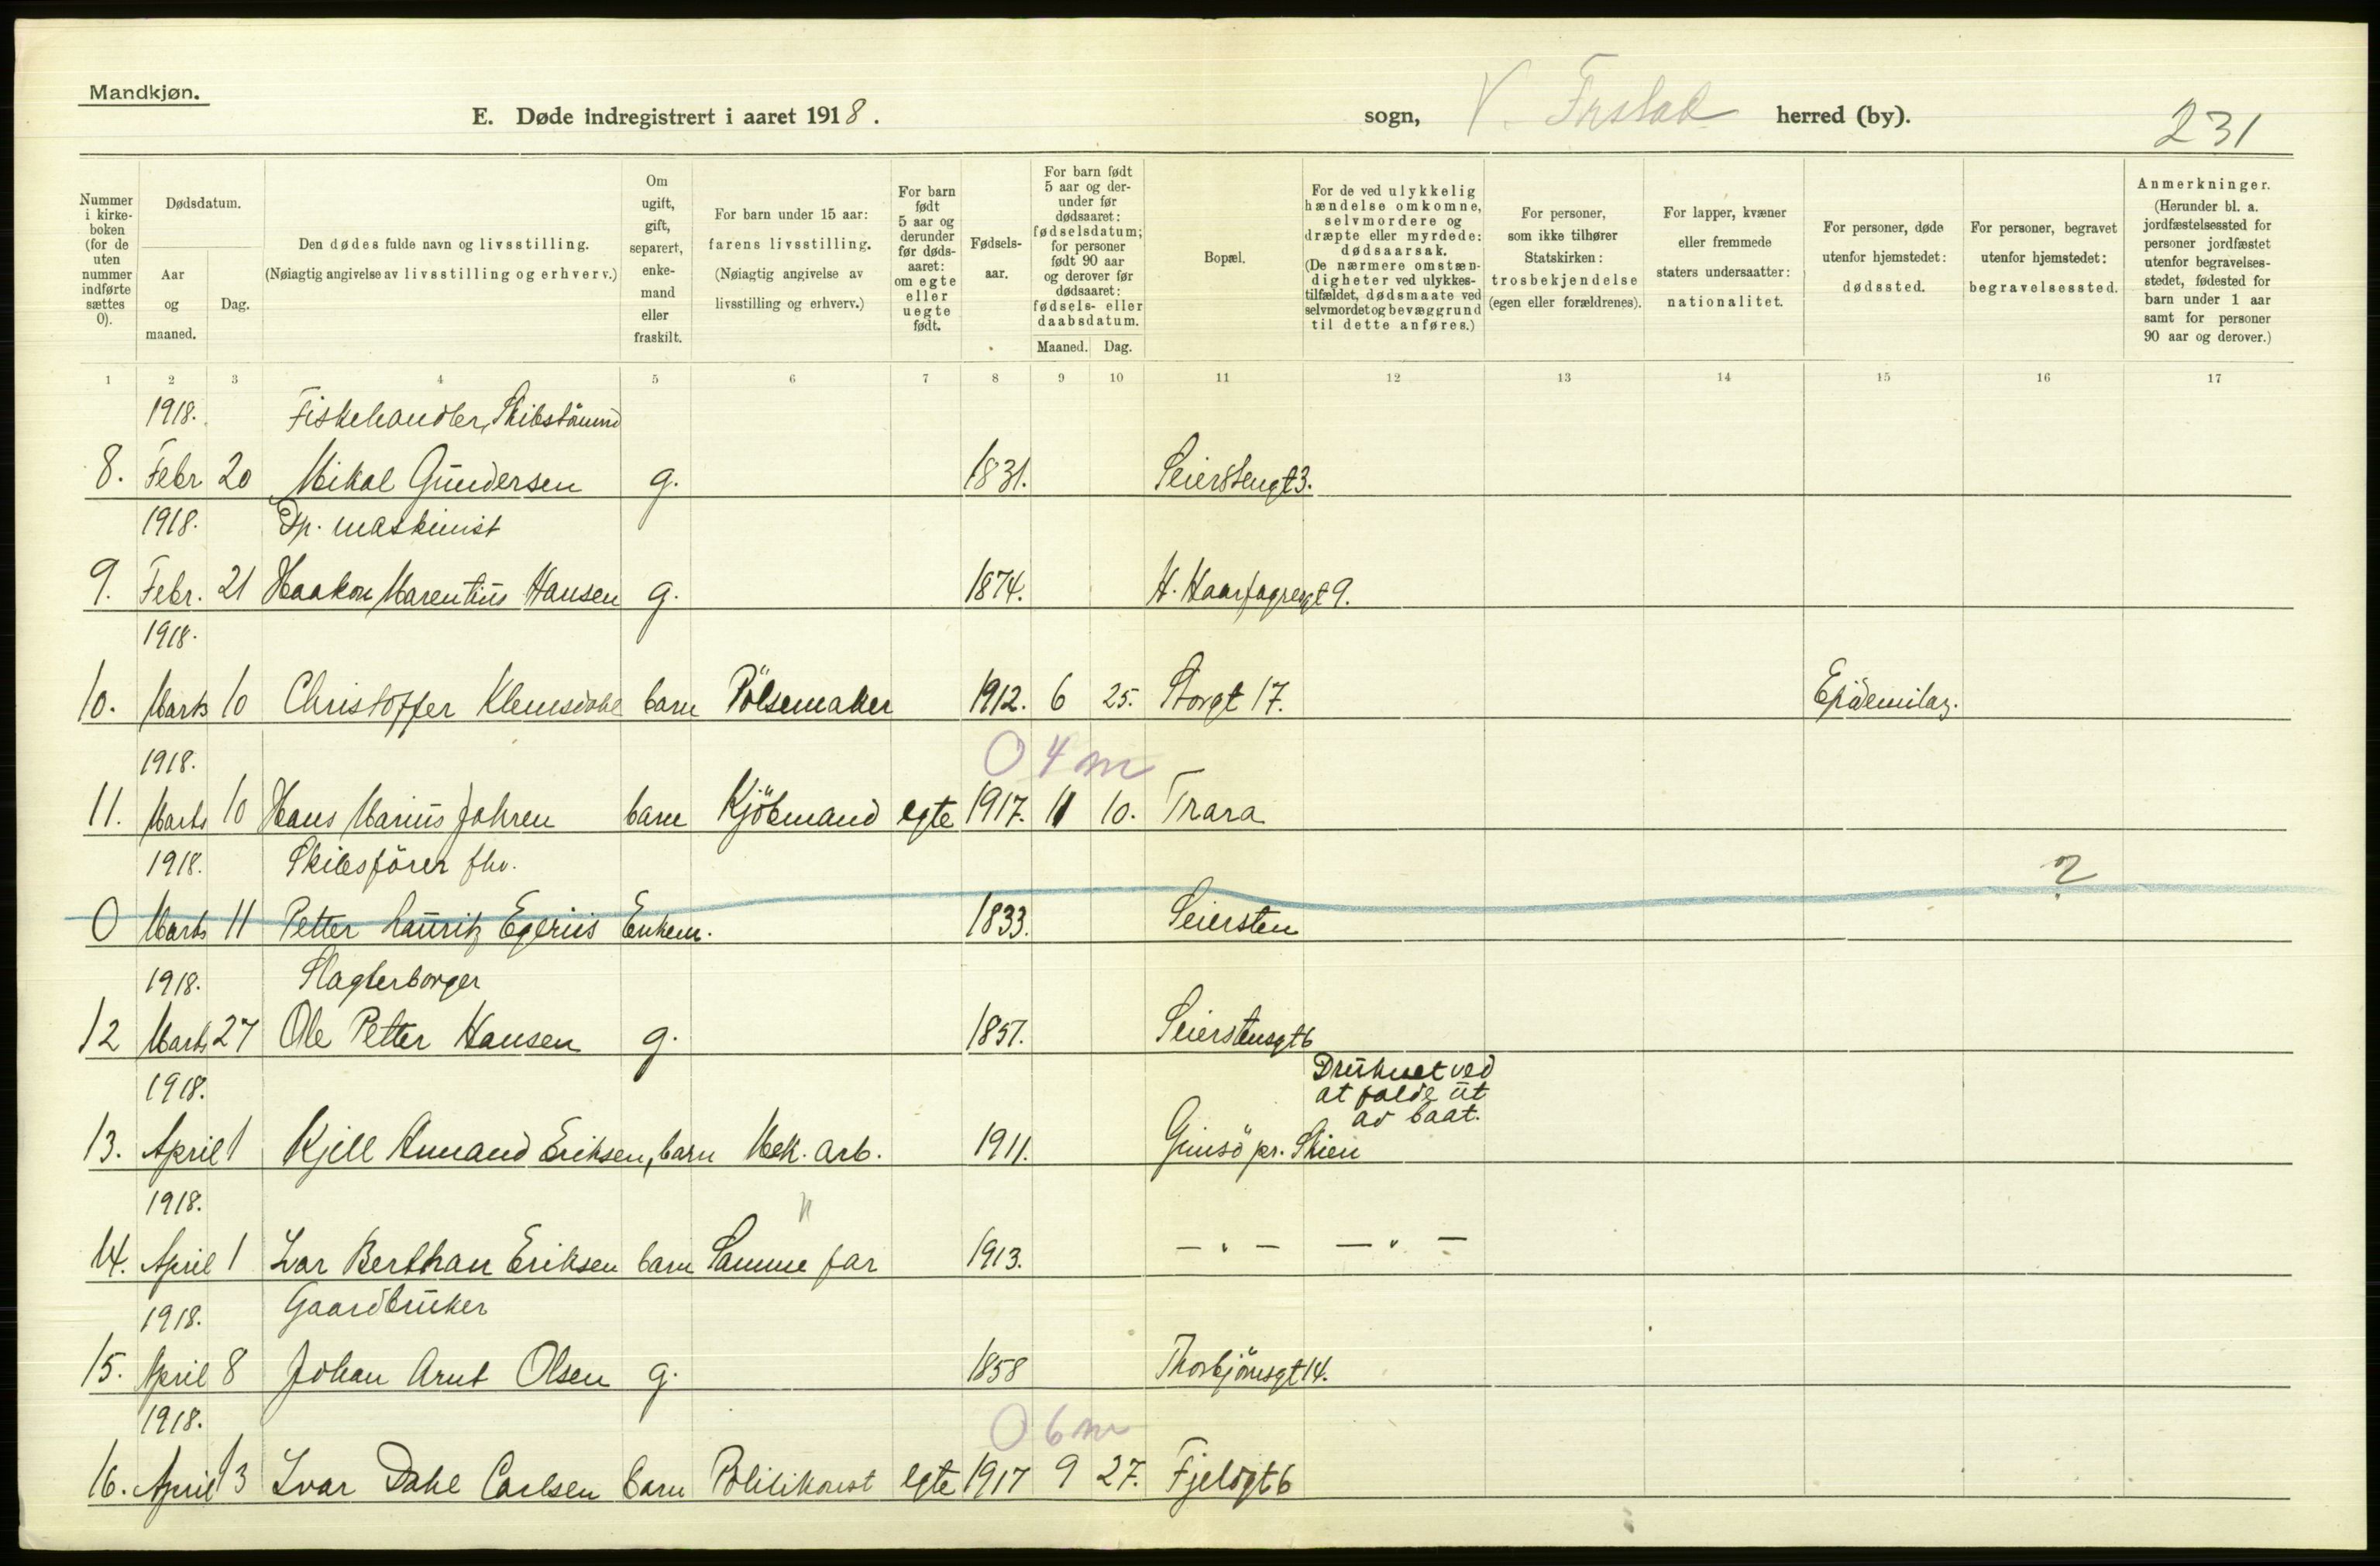 Mandkjøn.
E. Døde indregistrert i aaret 1918.
sogn, V. Frstad herred (by).
231
Nummer i kirkeboken (for de uten nummer indførte sættes 0).
Dødsdatum.
Aar og maaned.
Dag.
Den dødes fulde navn og livsstilling. (Nøiagtig angivelse av livsstilling og erhverv.)
Om ugift, gift, separert, enkemand eller fraskilt.
For barn under 15 aar: farens livsstilling. (Nøiagtig angivelse av livsstilling og erhverv.)
For barn født 5 aar og derunder før dødsaaret: om egte eller uegte født.
Fødselsaar.
For barn født 5 aar og derunder før dødsaaret: fødselsdatum; for personer født 90 aar og derover før dødsaaret: fødsels- eller daabsdatum.
Maaned. Dag.
Bopæl.
For de ved ulykkelig hændelse omkomne, selvmordere og dræpte eller myrdede: dødsaarsak. (De nærmere omstændigheter ved ulykkestilfældet, dødsmaate ved selvmordet og bevæggrund til dette anføres.)
For personer, som ikke tilhører Statskirken: trosbekjendelse (egen eller forældrenes).
For lapper, kvæner eller fremmede staters undersaatter: nationalitet.
For personer, døde utenfor hjemstedet: dødssted.
For personer, begravet utenfor hjemstedet: begravelsessted.
Anmerkninger. (Herunder bl. a. jordfæstelsessted for personer jordfæstet utenfor begravelsesstedet, fødested for barn under 1 aar samt for personer 90 aar og derover.)
1 2 3 4 5 6 7 8 9 10 11 12 13 14 15 16 17
1918. Fiskehandler, Skibstömmd
8. Febr 20 Mikal Gundersen g. 1831. Seierstengt 3.
1918. Dp. maskinist
9. Febr. 21 Haakon Marentius Hansen g. 1874. H. Haarfagresgt 9.
1918.
10. Marts 10 Christoffer Klemsdahl barn Pölsemaker 1912. 6 25. Storgt 17. Epidemilaz.
1918. 0 4 m
11. Marts 10 Hans Marius Johren barn Kjöbmand egte 1917. 11 10. Trara
1918. Skibsförer fhv. ?
0 Marts 11 Petter Lauritz Egerius Enkem. 1833. Seiersten
1918. Slagterborger
12 Marts 27 Ole Petter Hansen g. 1857. Seierstensgt 6
1918. Druknet ved
at falde ut
av baat.
13. April 1 Kjell Amand Eriksen, barn Mek. arb. 1911. Gimsö pr. Skien
1918. "
14. April 1 Ivar Berthan Eriksen barn Samme far 1913. - " - - " -
1918. Gaardbruker
15. April 8 Johan Arnt Olsen g. 1858 Thorbjörnsgt 14.
1918. 0 6 m
16. April 13 Ivar Dahl Carlsen barn Politikonst egte 1917 9 27. Fjeldgt 6